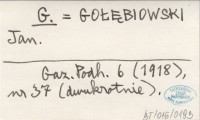 G. = GOŁĘBIOWSKI
Jan.
Gaz. Podh. 6 (1918),
nr 37 (dwukrotnie).